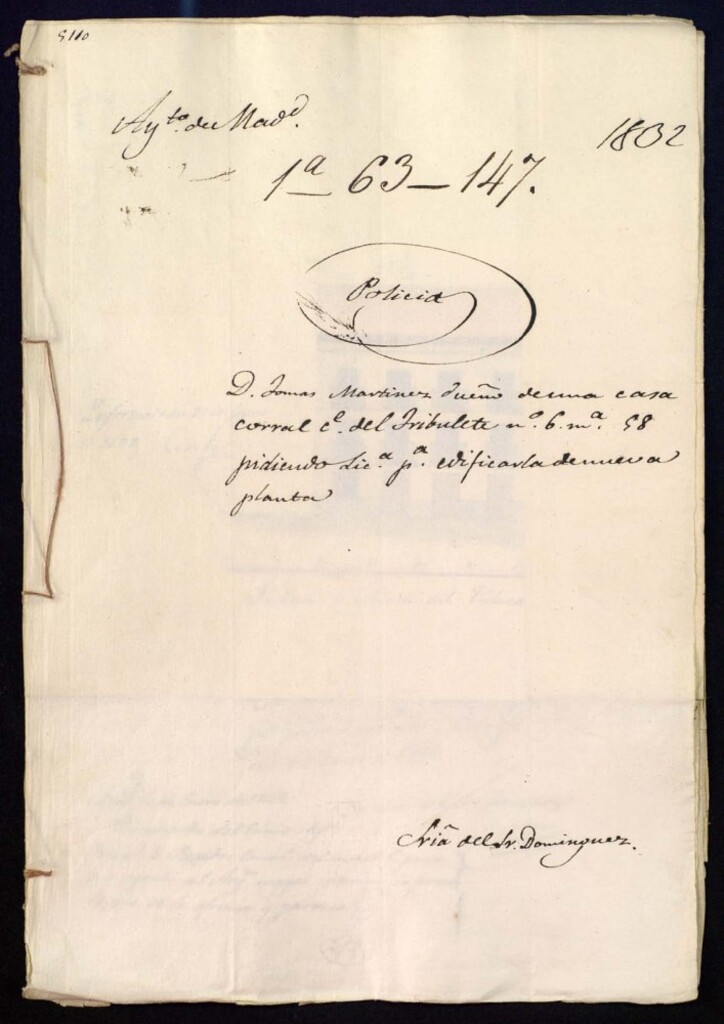 5110
Ayto. de Madd.
1832
1a 63-147.
Policia
D. Tomas Martinez dueño de una casa
corral ce. del Tribulete no. 6. ma. 58
pidiendo Lica. pa. edificarla de nueva
planta
Sria del Sr. Dominguez.